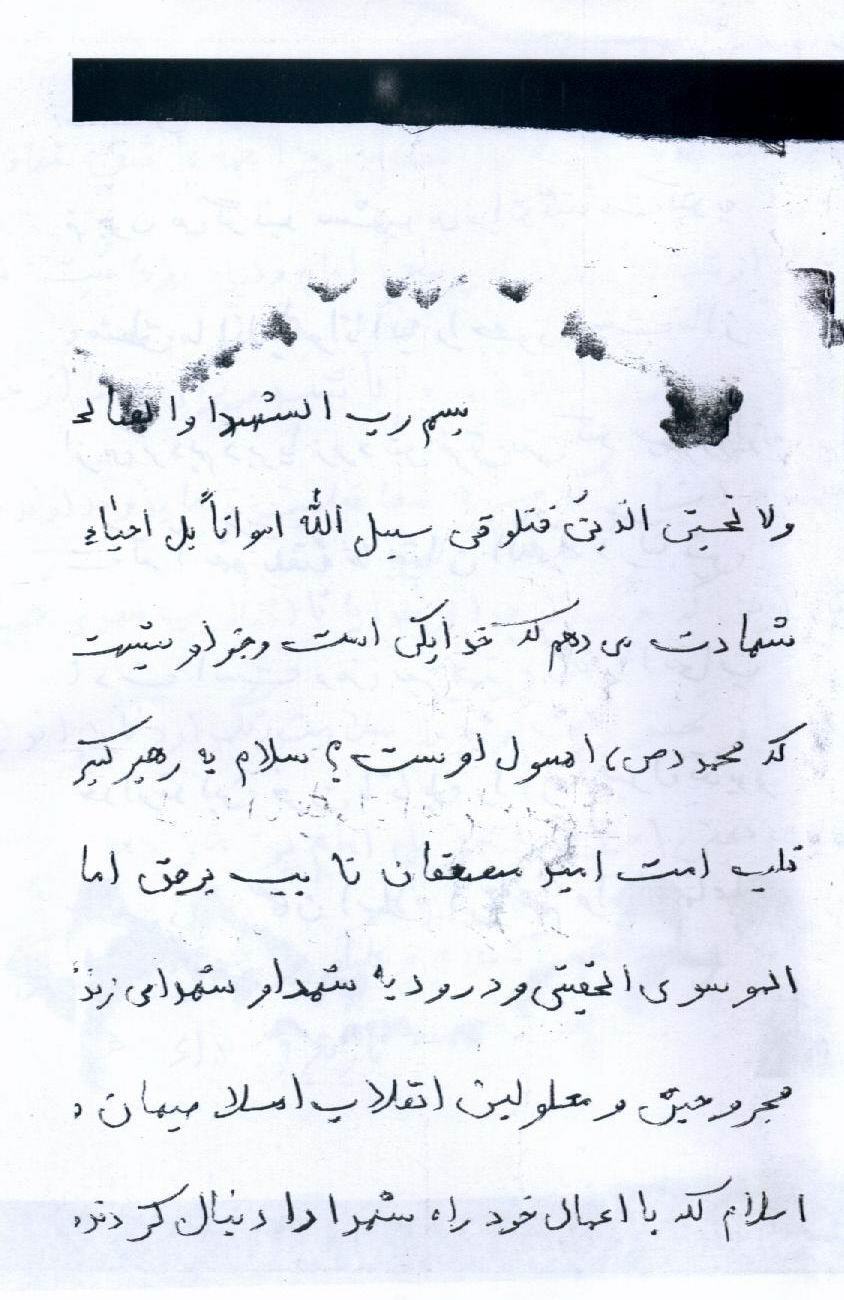 بسم رب الشهدا والصالحـ
ولا تحسبن الذینَ قتلو فی سبیل الله امواتاً بل احیاء
شهادت می دهم که خدا یکی است وجز او نیست
که محمد (ص) رسول اوست ؟ سلام به رهبر کبیر
قلب امت امید مستضعفان نا یب برحق اما
الموسوی الخمینی و درود به شهدا و شهدای زند
مجروحین و معلولین انقلاب اسلا میمان و
اسلام که با اعمال خود راه شهدا را دنبال کردند